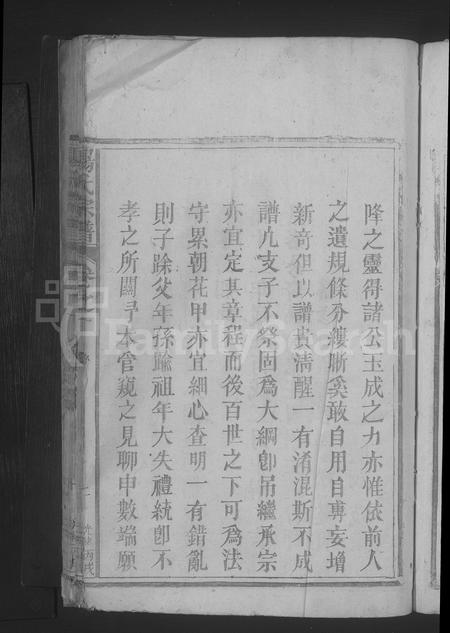 隆之靈得諸公玉成之力亦惟依前人
之遺規條分縷晰奚敢自用自專妄增
新奇但以譜貴清醒一有淆混斯不成
譜凡支子不祭固爲大綱卽吊繼承宗
亦宜定其章程而後百世之下可爲法
守累朝花甲亦宜細心查明一有錯亂
則子躋父年孫踰祖年大失禮統卽不
孝之所關尋本管窺之見聊申數端願
氏宗譜
丙戌
FamilySearch